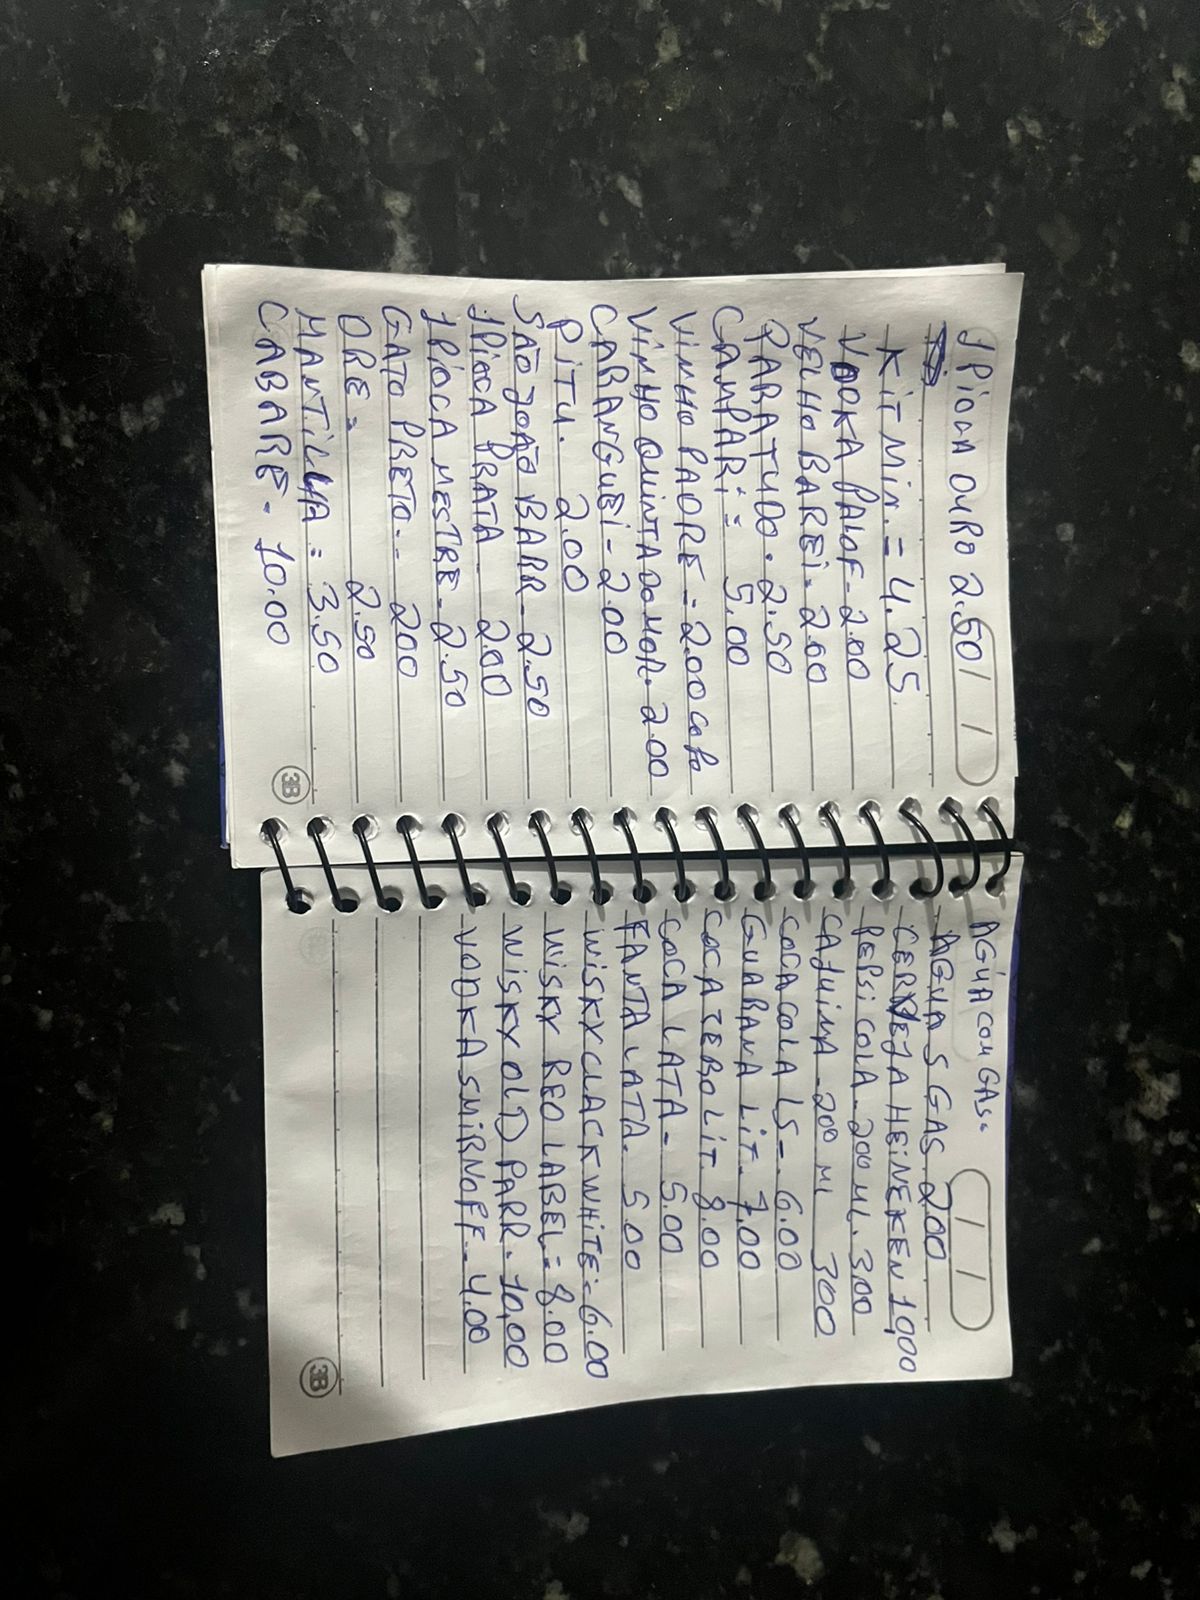 1PiOCA OURO 2.50
KiT Min. = 4.25
VODKA PALOF - 2.00
VELHO BAREi. 2.00
PARATUDO. 2.50
CAMPARi = 5.00
ViNHO PADRE = 2.00 COPO
ViNHO QUINTA DO MOR. 2.00
CARANGUEi - 2.00
PiTU. 2.00
SÃO JOÃO BARR - 2.50
1PiOCA PRATA 2.00
1PiOCA MESTRE - 2.50
GATO PRETO.. 200
DRE = 2.50
MANTiLHA = 3.50
CABARE - 10.00
3B
AGUA COM GAS.
AGUA S GAS 200
CERVEJA HEiNEKEN 10,00
PEPSi COLA - 200 ML. 3,00
CAJUiNA - 200 ML 300
COCA COLA LS - 6.00
GUARANA LiT. 7,00
COCA ZERO LiT. 8.00
COCA LATA - 5.00
FANTA LATA. 5.00
WiSKY CLACK WHiTE = 6.00
WiSKY RED LABEL = 8.00
WiSKY OLD PARR. 10,00
VODKA SMiRNOFF - 4.00
3B